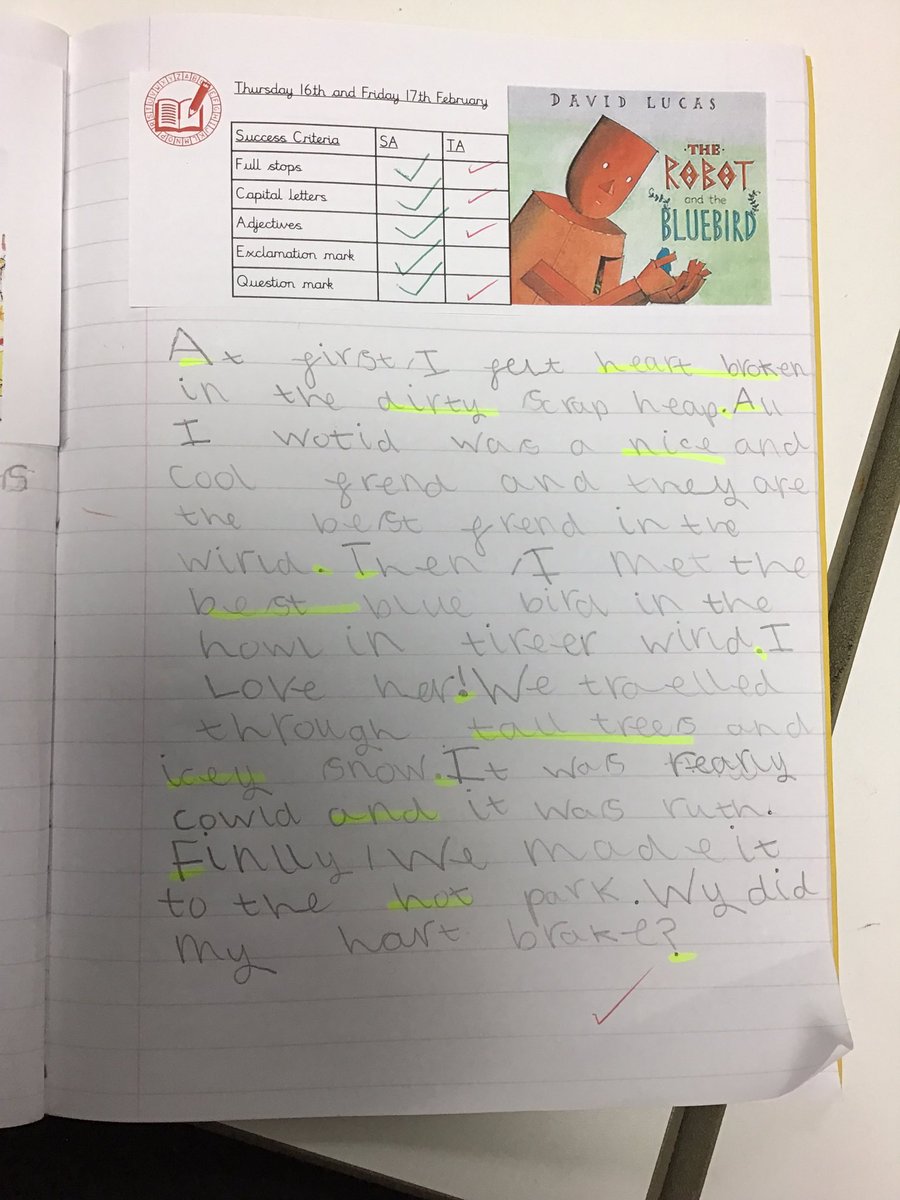 Thursday 16th and Friday 17th February
Success Criteria SA TA
Full stops
Capital letters
Adjectives
Exclamation mark
Question mark
DAVID LUCAS
THE
ROBOT
and the
BLUEBIRD
At first, I felt heart broken
in the dirty scrap heap. All
I wotid was a nice and
cool frend and they are
the best frend in the
wirld. Then, I met the
best blue bird in the
howl in tireer wirld. I
Love her! We travelled
through tall trees and
icey snow. It was realy
cowld and it was ruth.
Finlly, We made it
to the hot park. Wy did
my hart brake?